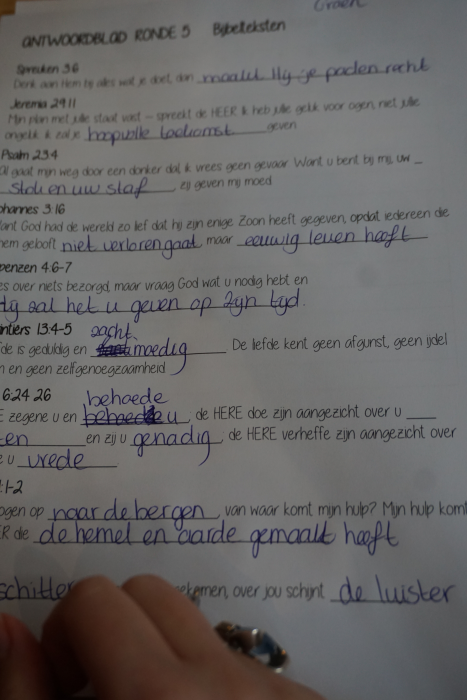 Groen
ANTWOORDBLAD RONDE 5 Bijbelteksten
Spreuken 3:6
Denk aan Hem bij alles wat je doet, dan maakt Hij je paden recht
Jeremia 29:11
Mijn plan met jullie staat vast – spreekt de HEER. Ik heb jullie geluk voor ogen, niet jullie
ongeluk: ik zal je hoopvolle toekomst geven
Psalm 23:4
Al gaat mijn weg door een donker dal, ik vrees geen gevaar. Want u bent bij mij, uw _
stok en uw staf, zij geven mij moed
ohannes 3:16
ant God had de wereld zo lief dat hij zijn enige Zoon heeft gegeven, opdat iedereen die
hem gelooft niet verloren gaat maar eeuwig leven heeft
penzen 4:6-7
es over niets bezorgd, maar vraag God wat u nodig hebt en
Hij zal het u geven op Zijn tijd.
ntiërs 13:4-5 zacht
fde is geduldig en moedig De liefde kent geen afgunst, geen ijdel
n en geen zelfgenoegzaamheid
6:24 26 behoede
E zegene u en u, de HERE doe zijn aangezicht over u ____
en en zij u genadig, de HERE verheffe zijn aangezicht over
e u vrede
:1-2
ogen op naar de bergen, van waar komt mijn hulp? Mijn hulp komt
R die de hemel en aarde gemaakt heeft
schitter ekomen, over jou schijnt de luister